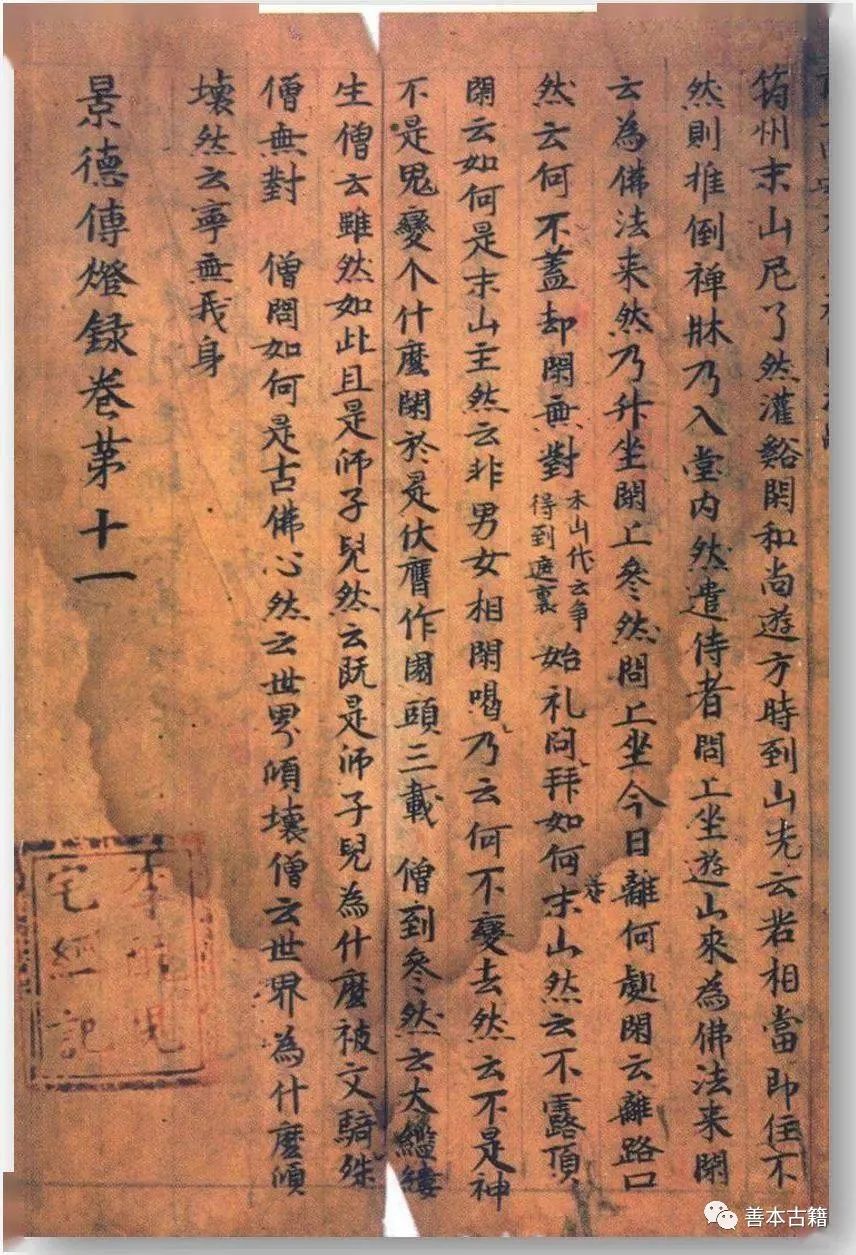 筠州末山尼了然灌谿閑和尚遊方時到山先云若相當即住不
然則推倒禅牀乃入堂内然遣侍者問上坐遊山來為佛法来閑
云為佛法来然乃升坐閑上參然問上坐今日離何處閑云離路口
然云何不蓋却閑無對末山代云争得到遮裏始礼問拜如何末山然云不露頂
閑云如何是末山主然云非男女相閑喝乃云何不變去然云不是神
不是鬼變个什麼閑於是伏膺作園頭三載 僧到參然云太繿縷
生僧云雖然如此且是师子兒然云既是师子兒為什麼被文騎殊
僧無對 僧問如何是古佛心然云世界傾壞僧云世界為什麼傾
壞然云寧無我身
景德傳燈録卷第十一
李兒
宅經記
善本古籍